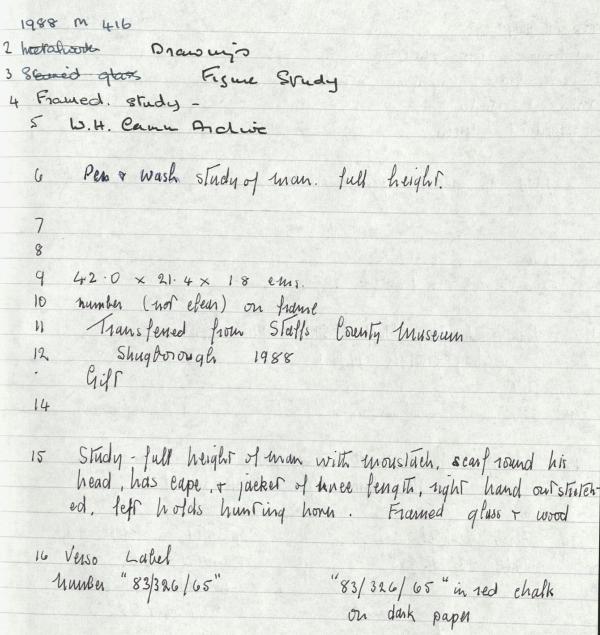 1988 M 416
2 Drawings
3 Stained glass Figure Study
4 Framed. study -
5 W.H. Camm Archive
6 Pen & wash study of man. full height.
7
8
9 42.0 x 21.4 x 18 cms.
10 number (not clear) on frame
11 Transferred from Staffs County Museum
12 Shugborough 1988
Gift
14
15 Study - full height of man with moustach, scarf round his
head, has cape, & jacket of knee length, right hand outstretch-
ed, left holds hunting horn. Framed glass & wood
16 Verso Label
Number "83/326/65" "83/326/65" in red chalk
on dark paper